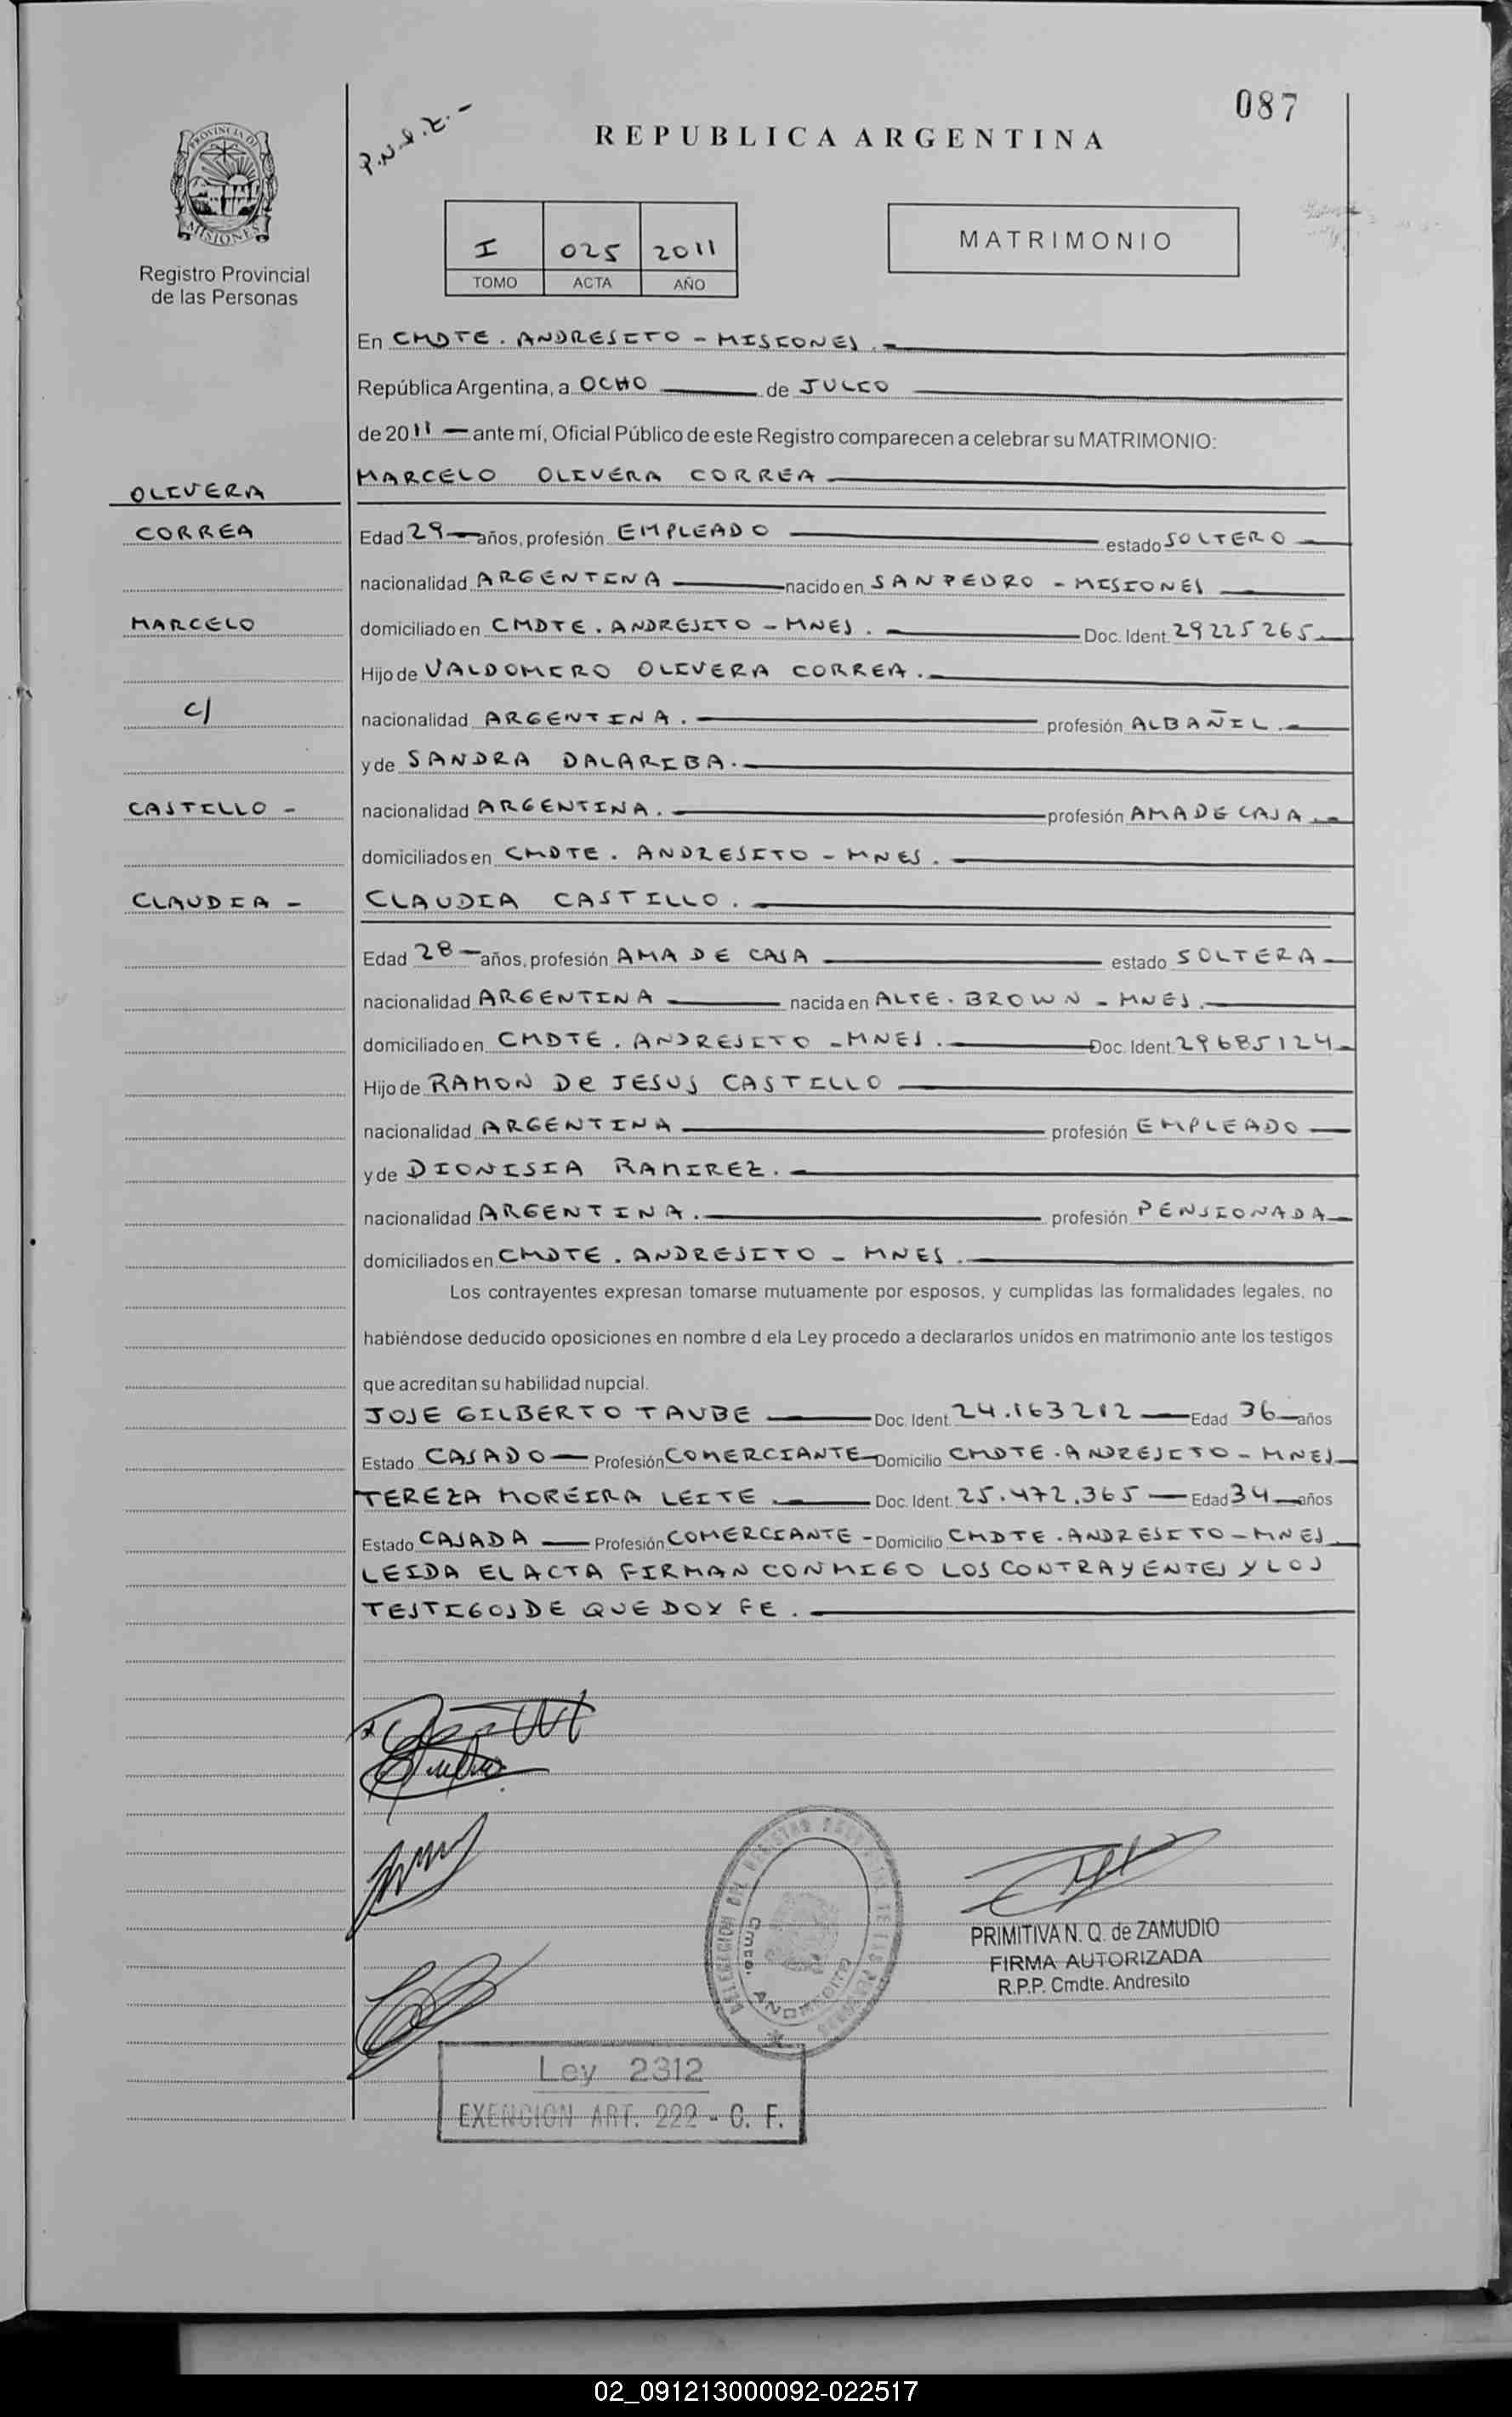 087
P.N.I.Z.-
REPUBLICA ARGENTINA
PROVINCIA DE MISIONES
Registro Provincial
de las Personas
I 025 2011
TOMO ACTA AÑO
MATRIMONIO
En CMDTE. ANDRESITO - MISIONES.-
República Argentina, a OCHO de JULIO
de 2011 — ante mí, Oficial Público de este Registro comparecen a celebrar su MATRIMONIO:
OLIVERA
MARCELO OLIVERA CORREA
CORREA
Edad 29 — años, profesión EMPLEADO estado SOLTERO
nacionalidad ARGENTINA nacido en SAN PEDRO - MISIONES
MARCELO
domiciliado en CMDTE. ANDRESITO - MNES. Doc. Ident. 29225265
Hijo de VALDOMIRO OLIVERA CORREA.
C/
nacionalidad ARGENTINA. profesión ALBAÑIL.
y de SANDRA DALARIBA.
CASTILLO -
nacionalidad ARGENTINA. profesión AMA DE CASA.
domiciliados en CMDTE. ANDRESITO - MNES.
CLAUDIA -
CLAUDIA CASTILLO.
Edad 28 — años, profesión AMA DE CASA estado SOLTERA
nacionalidad ARGENTINA nacida en ALTE. BROWN - MNES.
domiciliado en CMDTE. ANDRESITO - MNES. Doc. Ident. 29685124
Hijo de RAMON De JESUS CASTILLO
nacionalidad ARGENTINA profesión EMPLEADO
y de DIONISIA RAMIREZ.
nacionalidad ARGENTINA. profesión PENSIONADA
domiciliados en CMDTE. ANDRESITO - MNES.
Los contrayentes expresan tomarse mutuamente por esposos, y cumplidas las formalidades legales, no
habiéndose deducido oposiciones en nombre d ela Ley procedo a declararlos unidos en matrimonio ante los testigos
que acreditan su habilidad nupcial.
JOSE GILBERTO TAUBE Doc. Ident. 24.163212 Edad 36 años
Estado CASADO Profesión COMERCIANTE Domicilio CMDTE. ANDRESITO - MNES
TEREZA MOREIRA LEITE. Doc. Ident. 25.472.365 Edad 34 años
Estado CASADA Profesión COMERCIANTE - Domicilio CMDTE. ANDRESITO - MNES
LEIDA EL ACTA FIRMAN CONMIGO LOS CONTRAYENTES Y LOS
TESTIGOS DE QUE DOY FE.
DELEGACION DEL REGISTRO DE LAS PERSONAS
Cmte. ANDRESITO
PRIMITIVA N. Q. de ZAMUDIO
FIRMA AUTORIZADA
R.P.P. Cmdte. Andresito
Ley 2312
EXENCION ART. 222 - C. F.
02_091213000092-022517